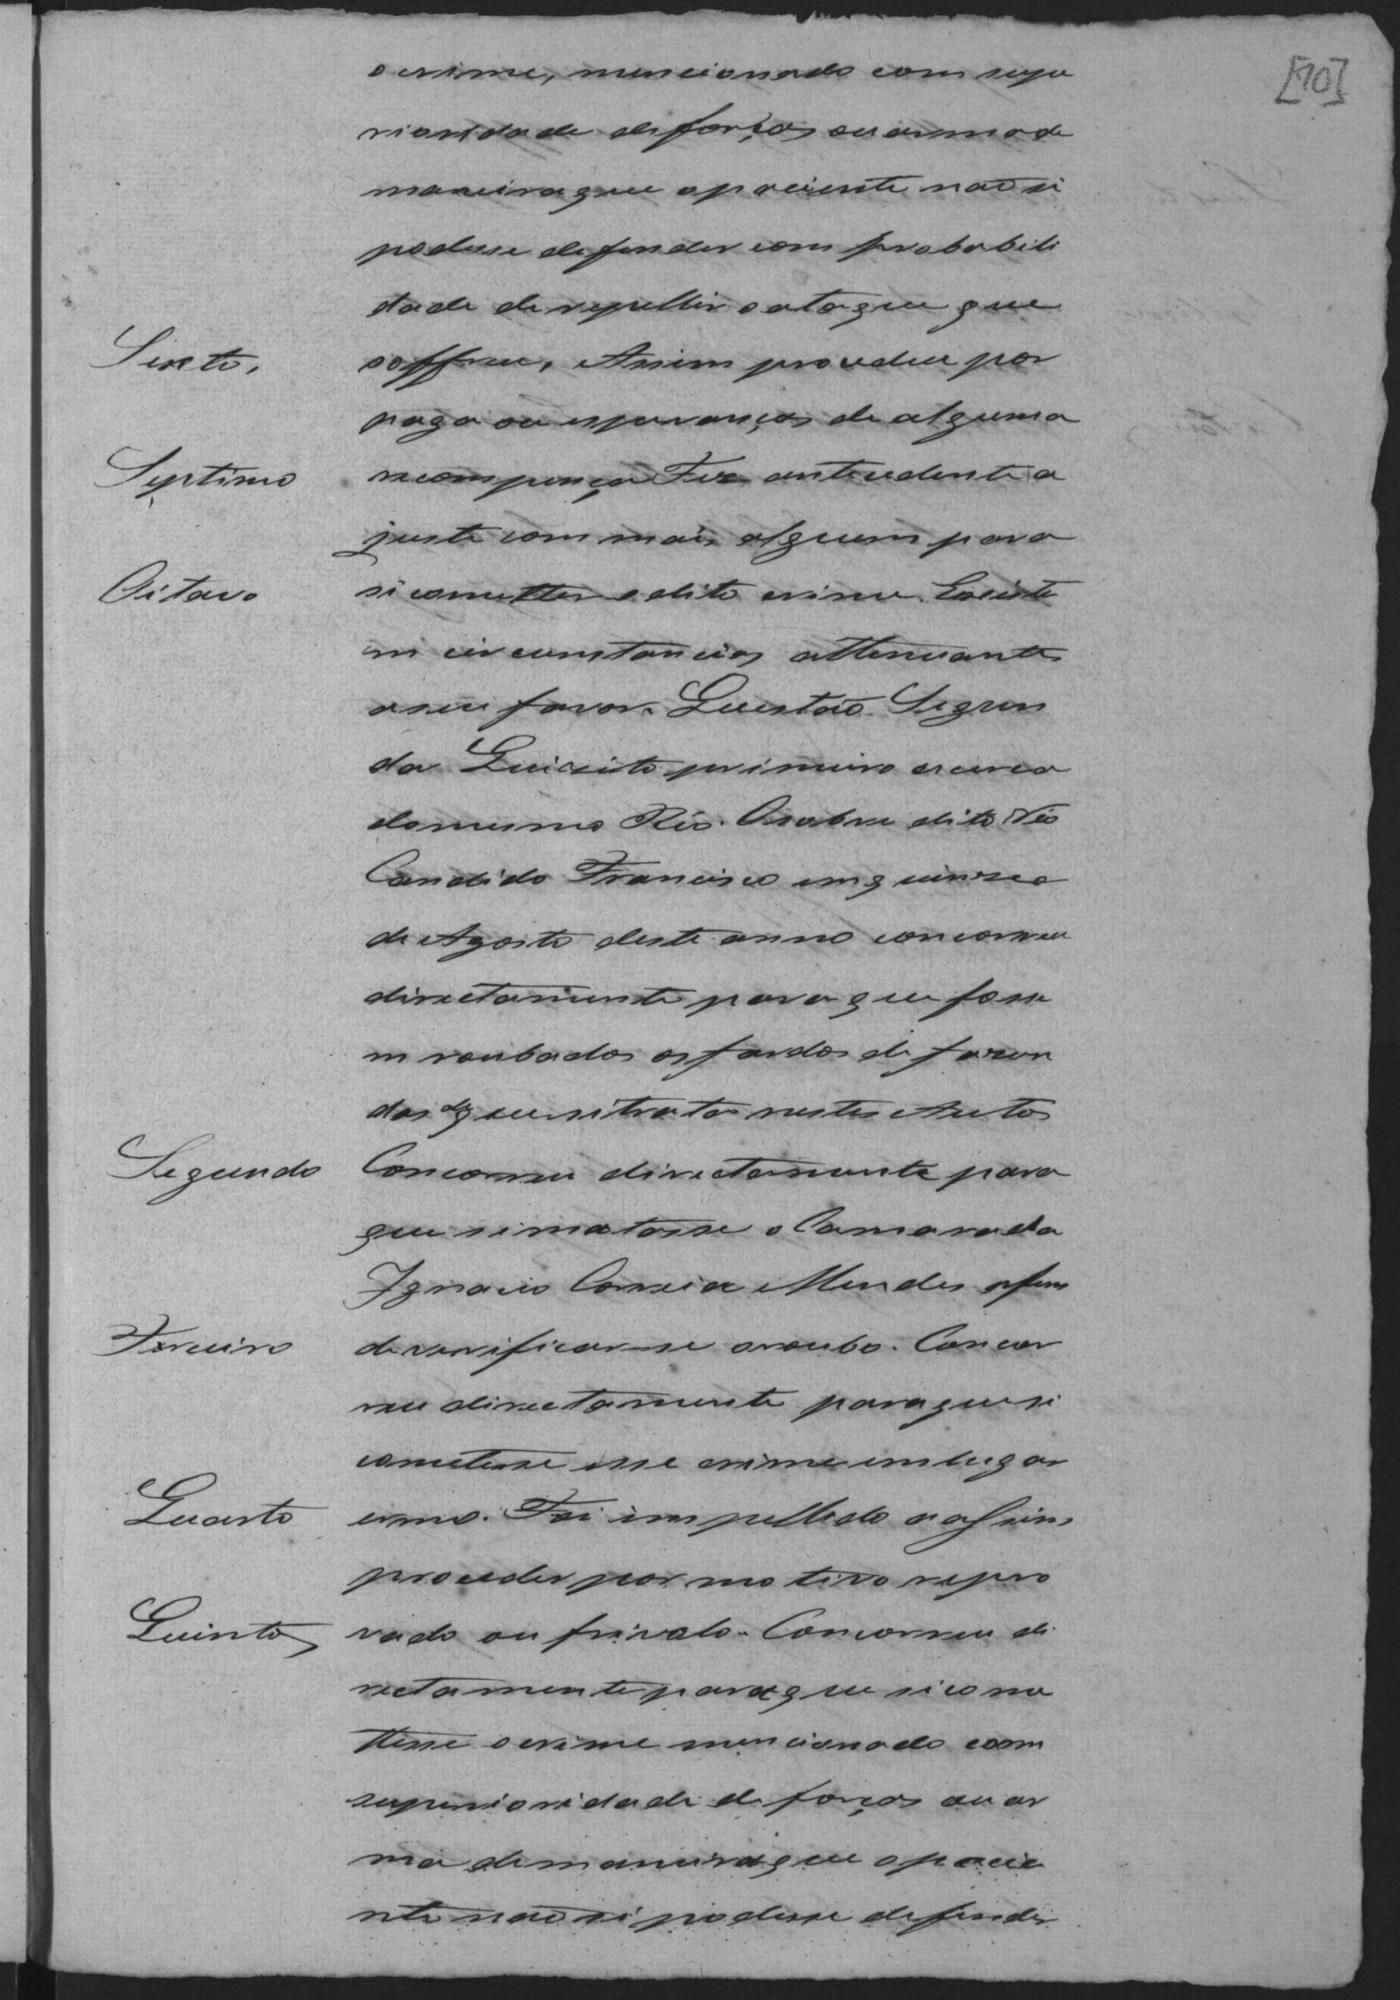 [70]
o crime, mencionado com supe
rioridade de forças ou arma de
maneira que o paciente não si
podesse defender com probabili
dade de repellir o ataque que
Sexto, soffreu, Assim procedeu por
paga ou esperanças de alguma
Septimo recompença Fez antecedente a
juste com mais alguem para
Oitavo si cometter o dito crime. Existe
m circunstancias attenuantes
a seu favor. Questão Segun
da Quisito primeiro acerca
do mesmo Réo. O sobre dito Réo
Candido Francisco em quinze
de Agosto deste anno concorreu
directamente para que fosse
m roubados os fardos de fazen
das de que si trata nestes Autos
Segundo Concorreu directamente para
que si matasse o Camarada
Ignacio Correia Mendes afim
Terceiro de verificar-se o roubo. Concor
reu directamente para que si
cometesse esse crime em lugar
Quarto ermo. Foi impellido a assim
proceder por motivo repro
Quinto vado ou frivolo. Concorreu di
rectamente para que si come
ttesse o crime mencionado com
superioridade de forças ou ar
ma de maneira que o pacie
nte não si podesse defender